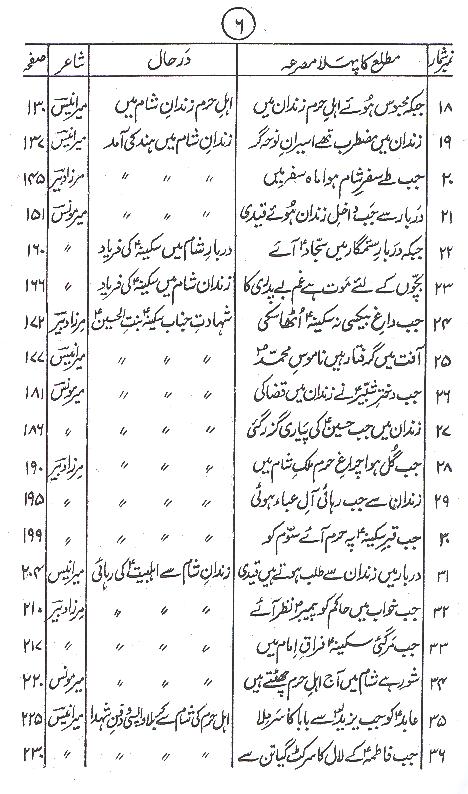 ۶
نمبر شمار مطلع کا پہلا مصرعہ در حال شاعر صفحہ
۱۸ جبکہ محبوس ہوئے اہل حرم زندان میں اہل حرم زندان شام میں میر انیس ۱۳۰
۱۹ زندان میں مضطرب تھے اسیران نوحہ گر زندان شام میں ہند کی آمد میر انیس ۱۳۷
۲۰ جب طے سفر شام ہوا ماہ سفر میں 〃 〃 〃 مرزا دبیر ۱۴۵
۲۱ دربار سے جب داخل زندان ہوئے قیدی 〃 〃 〃 میر مونس ۱۵۱
۲۲ جبکہ دربار ستمگار میں سجادؑ آئے دربار شام میں سکینہؑ کی فریاد 〃 ۱۶۰
۲۳ بچوں کے لئے موت ہے غم بے پدری کا زندان شام میں سکینہؑ کی فریاد 〃 ۱۶۶
۲۴ جب داغ بیکسی نہ سکینہؑ اٹھا سکی شہادت جناب سکینہؑ بنت الحسینؑ مرزا دبیر ۱۷۲
۲۵ آفت میں گرفتار ہیں ناموس محمدؐ 〃 〃 میر انیس ۱۷۷
۲۶ جب دختر شبیرؑ نے زندان میں قضا کی 〃 〃 〃 میر مونس ۱۸۱
۲۷ زندان میں جب حسینؑ کی پیاری گزر گئی 〃 〃 〃 〃 ۱۸۶
۲۸ جب گل ہوا چراغ حرم ملک شام میں 〃 〃 〃 مرزا دبیر ۱۹۰
۲۹ زندان سے جب رہائی آل عباء ہوئی 〃 〃 〃 〃 ۱۹۵
۳۰ جب قبر سکینہؑ پہ حرم آئے سوّم کو 〃 〃 〃 〃 ۱۹۹
۳۱ دربار میں زندان سے طلب ہوتے ہیں قیدی زندان شام سے اہلبیتؑ کی رہائی میر انیس ۲۰۴
۳۲ جب خواب میں حاکم کو پیمبرؐ نظر آئے 〃 〃 〃 مرزا دبیر ۲۱۰
۳۳ جب مر گئی سکینہؑ فراق امام میں 〃 〃 〃 〃 ۲۱۷
۳۴ شور ہے شام میں آج اہل حرم چھٹتے ہیں 〃 〃 〃 میر مونس ۲۲۰
۳۵ عابدؑ کو جب یزید سے بابا کا سر ملا اہل حرم کی شام سے کربلا واپسی و دفن شہدا میر انیس ۲۲۵
۳۶ جب فاطمہؑ کے لال کا سر کٹ گیا تن سے 〃 〃 〃 〃 ۲۳۰